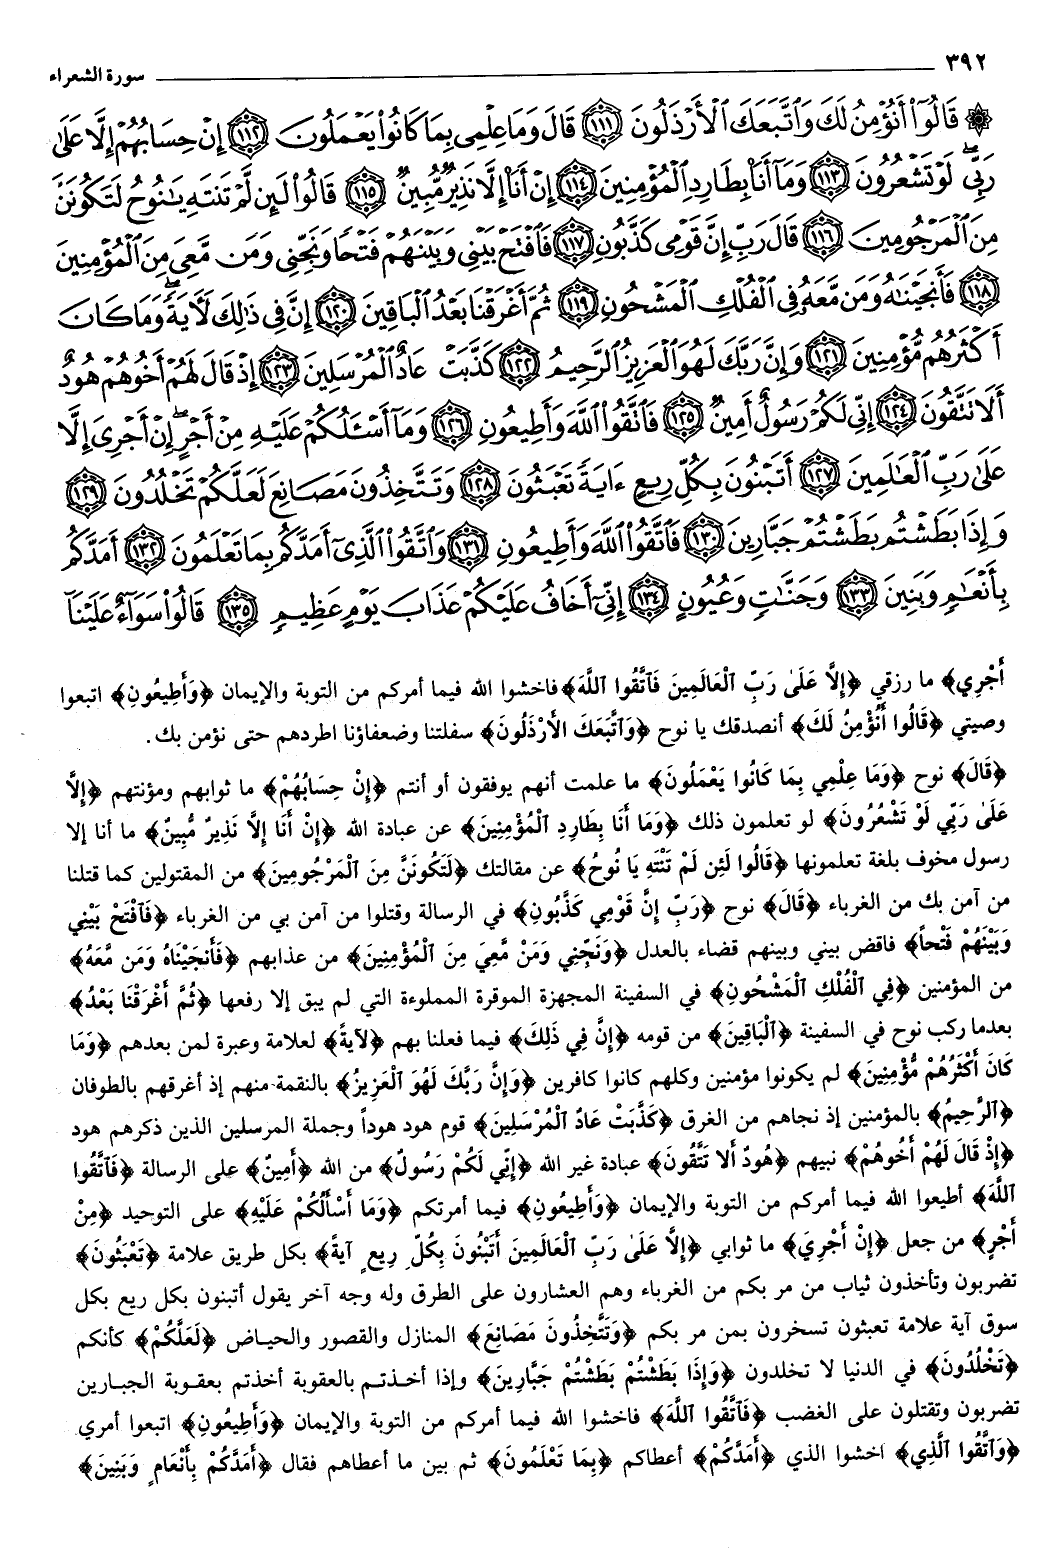 ٣٩٢ سورة الشعراء
۞ قَالُوٓا۟ أَنُؤْمِنُ لَكَ وَٱتَّبَعَكَ ٱلْأَرْذَلُونَ ﴿١١١﴾ قَالَ وَمَا عِلْمِى بِمَا كَانُوا۟ يَعْمَلُونَ ﴿١١٢﴾ إِنْ حِسَابُهُمْ إِلَّا عَلَىٰ
رَبِّى ۖ لَوْ تَشْعُرُونَ ﴿١١٣﴾ وَمَآ أَنَا۠ بِطَارِدِ ٱلْمُؤْمِنِينَ ﴿١١٤﴾ إِنْ أَنَا۠ إِلَّا نَذِيرٌ مُّبِينٌ ﴿١١٥﴾ قَالُوا۟ لَئِن لَّمْ تَنتَهِ يَٰنُوحُ لَتَكُونَنَّ
مِنَ ٱلْمَرْجُومِينَ ﴿١١٦﴾ قَالَ رَبِّ إِنَّ قَوْمِى كَذَّبُونِ ﴿١١٧﴾ فَٱفْتَحْ بَيْنِى وَبَيْنَهُمْ فَتْحًا وَنَجِّنِى وَمَن مَّعِىَ مِنَ ٱلْمُؤْمِنِينَ
﴿١١٨﴾ فَأَنجَيْنَٰهُ وَمَن مَّعَهُۥ فِى ٱلْفُلْكِ ٱلْمَشْحُونِ ﴿١١٩﴾ ثُمَّ أَغْرَقْنَا بَعْدُ ٱلْبَاقِينَ ﴿١٢٠﴾ إِنَّ فِى ذَٰلِكَ لَءَايَةً ۖ وَمَا كَانَ
أَكْثَرُهُم مُّؤْمِنِينَ ﴿١٢١﴾ وَإِنَّ رَبَّكَ لَهُوَ ٱلْعَزِيزُ ٱلرَّحِيمُ ﴿١٢٢﴾ كَذَّبَتْ عَادٌ ٱلْمُرْسَلِينَ ﴿١٢٣﴾ إِذْ قَالَ لَهُمْ أَخُوهُمْ هُودٌ
أَلَا تَتَّقُونَ ﴿١٢٤﴾ إِنِّى لَكُمْ رَسُولٌ أَمِينٌ ﴿١٢٥﴾ فَٱتَّقُوا۟ ٱللَّهَ وَأَطِيعُونِ ﴿١٢٦﴾ وَمَآ أَسْـَٔلُكُمْ عَلَيْهِ مِنْ أَجْرٍ ۖ إِنْ أَجْرِىَ إِلَّا
عَلَىٰ رَبِّ ٱلْعَٰلَمِينَ ﴿١٢٧﴾ أَتَبْنُونَ بِكُلِّ رِيعٍ ءَايَةً تَعْبَثُونَ ﴿١٢٨﴾ وَتَتَّخِذُونَ مَصَانِعَ لَعَلَّكُمْ تَخْلُدُونَ ﴿١٢٩﴾
وَإِذَا بَطَشْتُم بَطَشْتُمْ جَبَّارِينَ ﴿١٣٠﴾ فَٱتَّقُوا۟ ٱللَّهَ وَأَطِيعُونِ ﴿١٣١﴾ وَٱتَّقُوا۟ ٱلَّذِىٓ أَمَدَّكُم بِمَا تَعْلَمُونَ ﴿١٣٢﴾ أَمَدَّكُم
بِأَنْعَٰمٍ وَبَنِينَ ﴿١٣٣﴾ وَجَنَّٰتٍ وَعُيُونٍ ﴿١٣٤﴾ إِنِّىٓ أَخَافُ عَلَيْكُمْ عَذَابَ يَوْمٍ عَظِيمٍ ﴿١٣٥﴾ قَالُوا۟ سَوَآءٌ عَلَيْنَآ
أَجْرِي﴾ ما رزقي ﴿إِلَّا عَلَىٰ رَبِّ ٱلْعَالَمِينَ فَٱتَّقُوا ٱللَّهَ﴾ فاخشوا الله فيما أمركم من التوبة والإيمان ﴿وَأَطِيعُونِ﴾ اتبعوا
وصيتي ﴿قَالُوا أَنُؤْمِنُ لَكَ﴾ أنصدقك يا نوح ﴿وَٱتَّبَعَكَ الأَرْذَلُونَ﴾ سفلتنا وضعفاؤنا اطردهم حتى نؤمن بك.
﴿قَالَ﴾ نوح ﴿وَمَا عِلْمِي بِمَا كَانُوا يَعْمَلُونَ﴾ ما علمت أنهم يوفقون أو أنتم ﴿إِنْ حِسَابُهُمْ﴾ ما ثوابهم ومؤنتهم ﴿إِلَّا
عَلَىٰ رَبِّي لَوْ تَشْعُرُونَ﴾ لو تعلمون ذلك ﴿وَمَا أَنَا بِطَارِدِ ٱلْمُؤْمِنِينَ﴾ عن عبادة الله ﴿إِنْ أَنَا إِلَّا نَذِيرٌ مُّبِينٌ﴾ ما أنا إلا
رسول مخوف بلغة تعلمونها ﴿قَالُوا لَئِن لَمْ تَنْتَهِ يَا نُوحُ﴾ عن مقالتك ﴿لَتَكُونَنَّ مِنَ ٱلْمَرْجُومِينَ﴾ من المقتولين كما قتلنا
من آمن بك من الغرباء ﴿قَالَ﴾ نوح ﴿رَبِّ إِنَّ قَوْمِي كَذَّبُونِ﴾ في الرسالة وقتلوا من آمن بي من الغرباء ﴿فَٱفْتَحْ بَيْنِي
وَبَيْنَهُمْ فَتْحاً﴾ فاقض بيني وبينهم قضاء بالعدل ﴿وَنَجِّنِي وَمَنْ مَّعِيَ مِنَ ٱلْمُؤْمِنِينَ﴾ من عذابهم ﴿فَأَنجَيْنَاهُ وَمَن مَّعَهُ﴾
من المؤمنين ﴿فِي ٱلْفُلْكِ ٱلْمَشْحُونِ﴾ في السفينة المجهزة الموقرة المملوءة التي لم يبق إلا رفعها ﴿ثُمَّ أَغْرَقْنَا بَعْدُ﴾
بعدما ركب نوح في السفينة ﴿ٱلْبَاقِينَ﴾ من قومه ﴿إِنَّ فِي ذَلِكَ﴾ فيما فعلنا بهم ﴿لآيَةً﴾ لعلامة وعبرة لمن بعدهم ﴿وَمَا
كَانَ أَكْثَرُهُمْ مُّؤْمِنِينَ﴾ لم يكونوا مؤمنين وكلهم كانوا كافرين ﴿وَإِنَّ رَبَّكَ لَهُوَ ٱلْعَزِيزُ﴾ بالنقمة منهم إذ أغرقهم بالطوفان
﴿ٱلرَّحِيمُ﴾ بالمؤمنين إذ نجاهم من الغرق ﴿كَذَّبَتْ عَادٌ ٱلْمُرْسَلِينَ﴾ قوم هود هوداً وجملة المرسلين الذين ذكرهم هود
﴿إِذْ قَالَ لَهُمْ أَخُوهُمْ﴾ نبيهم ﴿هُودٌ أَلا تَتَّقُونَ﴾ عبادة غير الله ﴿إِنِّي لَكُمْ رَسُولٌ﴾ من الله ﴿أَمِينٌ﴾ على الرسالة ﴿فَٱتَّقُوا
ٱللَّهَ﴾ أطيعوا الله فيما أمركم من التوبة والإيمان ﴿وَأَطِيعُونِ﴾ فيما أمرتكم ﴿وَمَا أَسْأَلُكُمْ عَلَيْهِ﴾ على التوحيد ﴿مِنْ
أَجْرٍ﴾ من جعل ﴿إِنْ أَجْرِيَ﴾ ما ثوابي ﴿إِلَّا عَلَىٰ رَبِّ ٱلْعَالَمِينَ أَتَبْنُونَ بِكُلِّ رِيعٍ آيَةً﴾ بكل طريق علامة ﴿تَعْبَثُونَ﴾
تضربون وتأخذون ثياب من مر بكم من الغرباء وهم العشارون على الطرق وله وجه آخر يقول أتبنون بكل ريع بكل
سوق آية علامة تعبثون تسخرون بمن مر بكم ﴿وَتَتَّخِذُونَ مَصَانِعَ﴾ المنازل والقصور والحياض ﴿لَعَلَّكُمْ﴾ كأنكم
﴿تَخْلُدُونَ﴾ في الدنيا لا تخلدون ﴿وَإِذَا بَطَشْتُمْ بَطَشْتُمْ جَبَّارِينَ﴾ وإذا أخذتم بالعقوبة أخذتم بعقوبة الجبارين
تضربون وتقتلون على الغضب ﴿فَٱتَّقُوا ٱللَّهَ﴾ فاخشوا الله فيما أمركم من التوبة والإيمان ﴿وَأَطِيعُونِ﴾ اتبعوا أمري
﴿وَٱتَّقُوا ٱلَّذِي﴾ اخشوا الذي ﴿أَمَدَّكُمْ﴾ أعطاكم ﴿بِمَا تَعْلَمُونَ﴾ ثم بين ما أعطاهم فقال ﴿أَمَدَّكُمْ بِأَنْعَامٍ وَبَنِينَ﴾